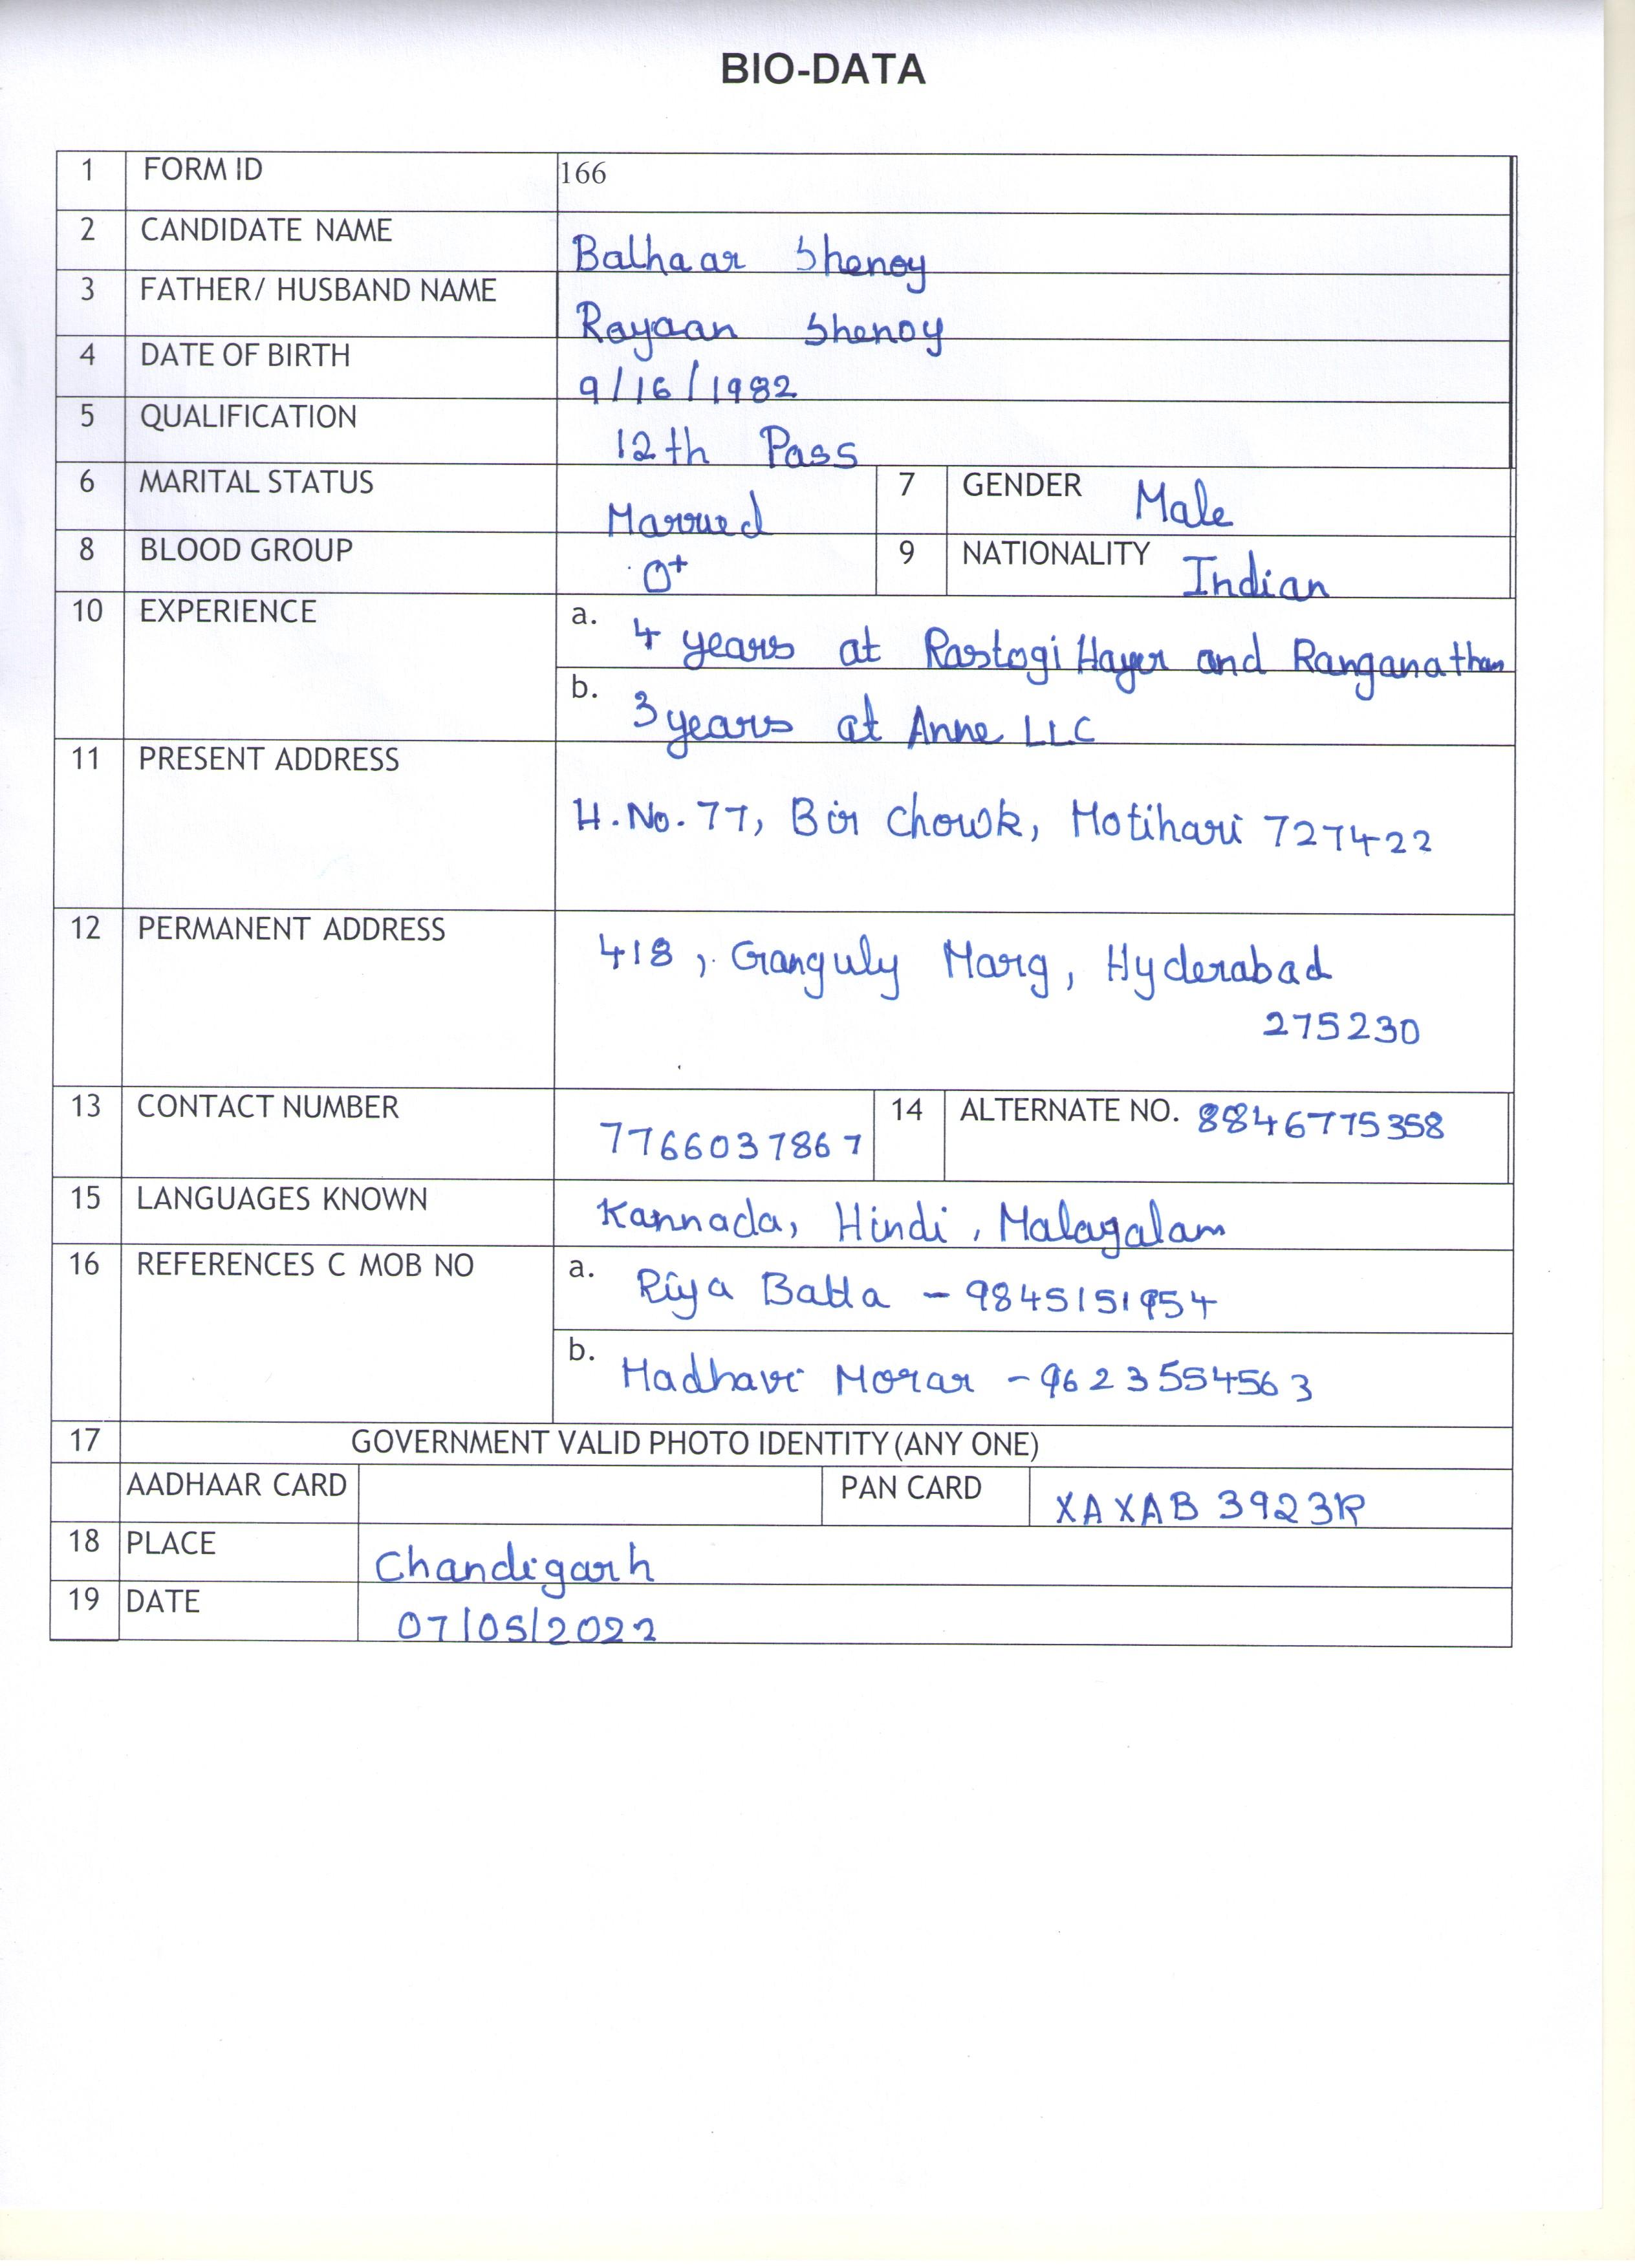 BIO-DATA
1 FORM ID 166
2 CANDIDATE NAME Balhaar Shenoy
3 FATHER/ HUSBAND NAME Rayaan Shenoy
4 DATE OF BIRTH 9/16/1982
5 QUALIFICATION 12th Pass
6 MARITAL STATUS Married 7 GENDER Male
8 BLOOD GROUP O+ 9 NATIONALITY Indian
10 EXPERIENCE a. 4 years at Rastogi Hayer and Ranganathan
b. 3 years at Anne LLC
11 PRESENT ADDRESS
H.No. 77, Bir Chowk, Motihari 727422
12 PERMANENT ADDRESS 418, Ganguly Marg, Hyderabad
275230
13 CONTACT NUMBER 7766037867 14 ALTERNATE NO. 8846775358
15 LANGUAGES KNOWN Kannada, Hindi, Malayalam
16 REFERENCES C MOB NO a. Riya Batta - 9845151954
b. Madhavi Morar - 9623554563
17 GOVERNMENT VALID PHOTO IDENTITY (ANY ONE)
AADHAAR CARD PAN CARD XAXAB3923R
18 PLACE Chandigarh
19 DATE 07/05/2022